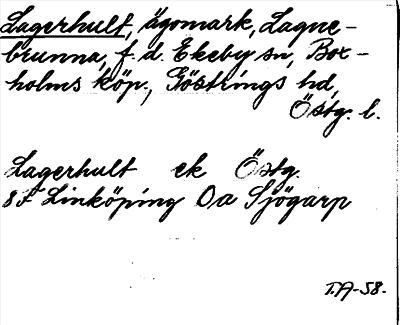 Lagerhult, ägomark, Lagne-
brunna, f. d. Ekeby sn, Box-
holms köp., Göstrings hd,
Östg. l.
Lagerhult ek Östg.
8F Linköping Oa Sjögarp
T.A-58.